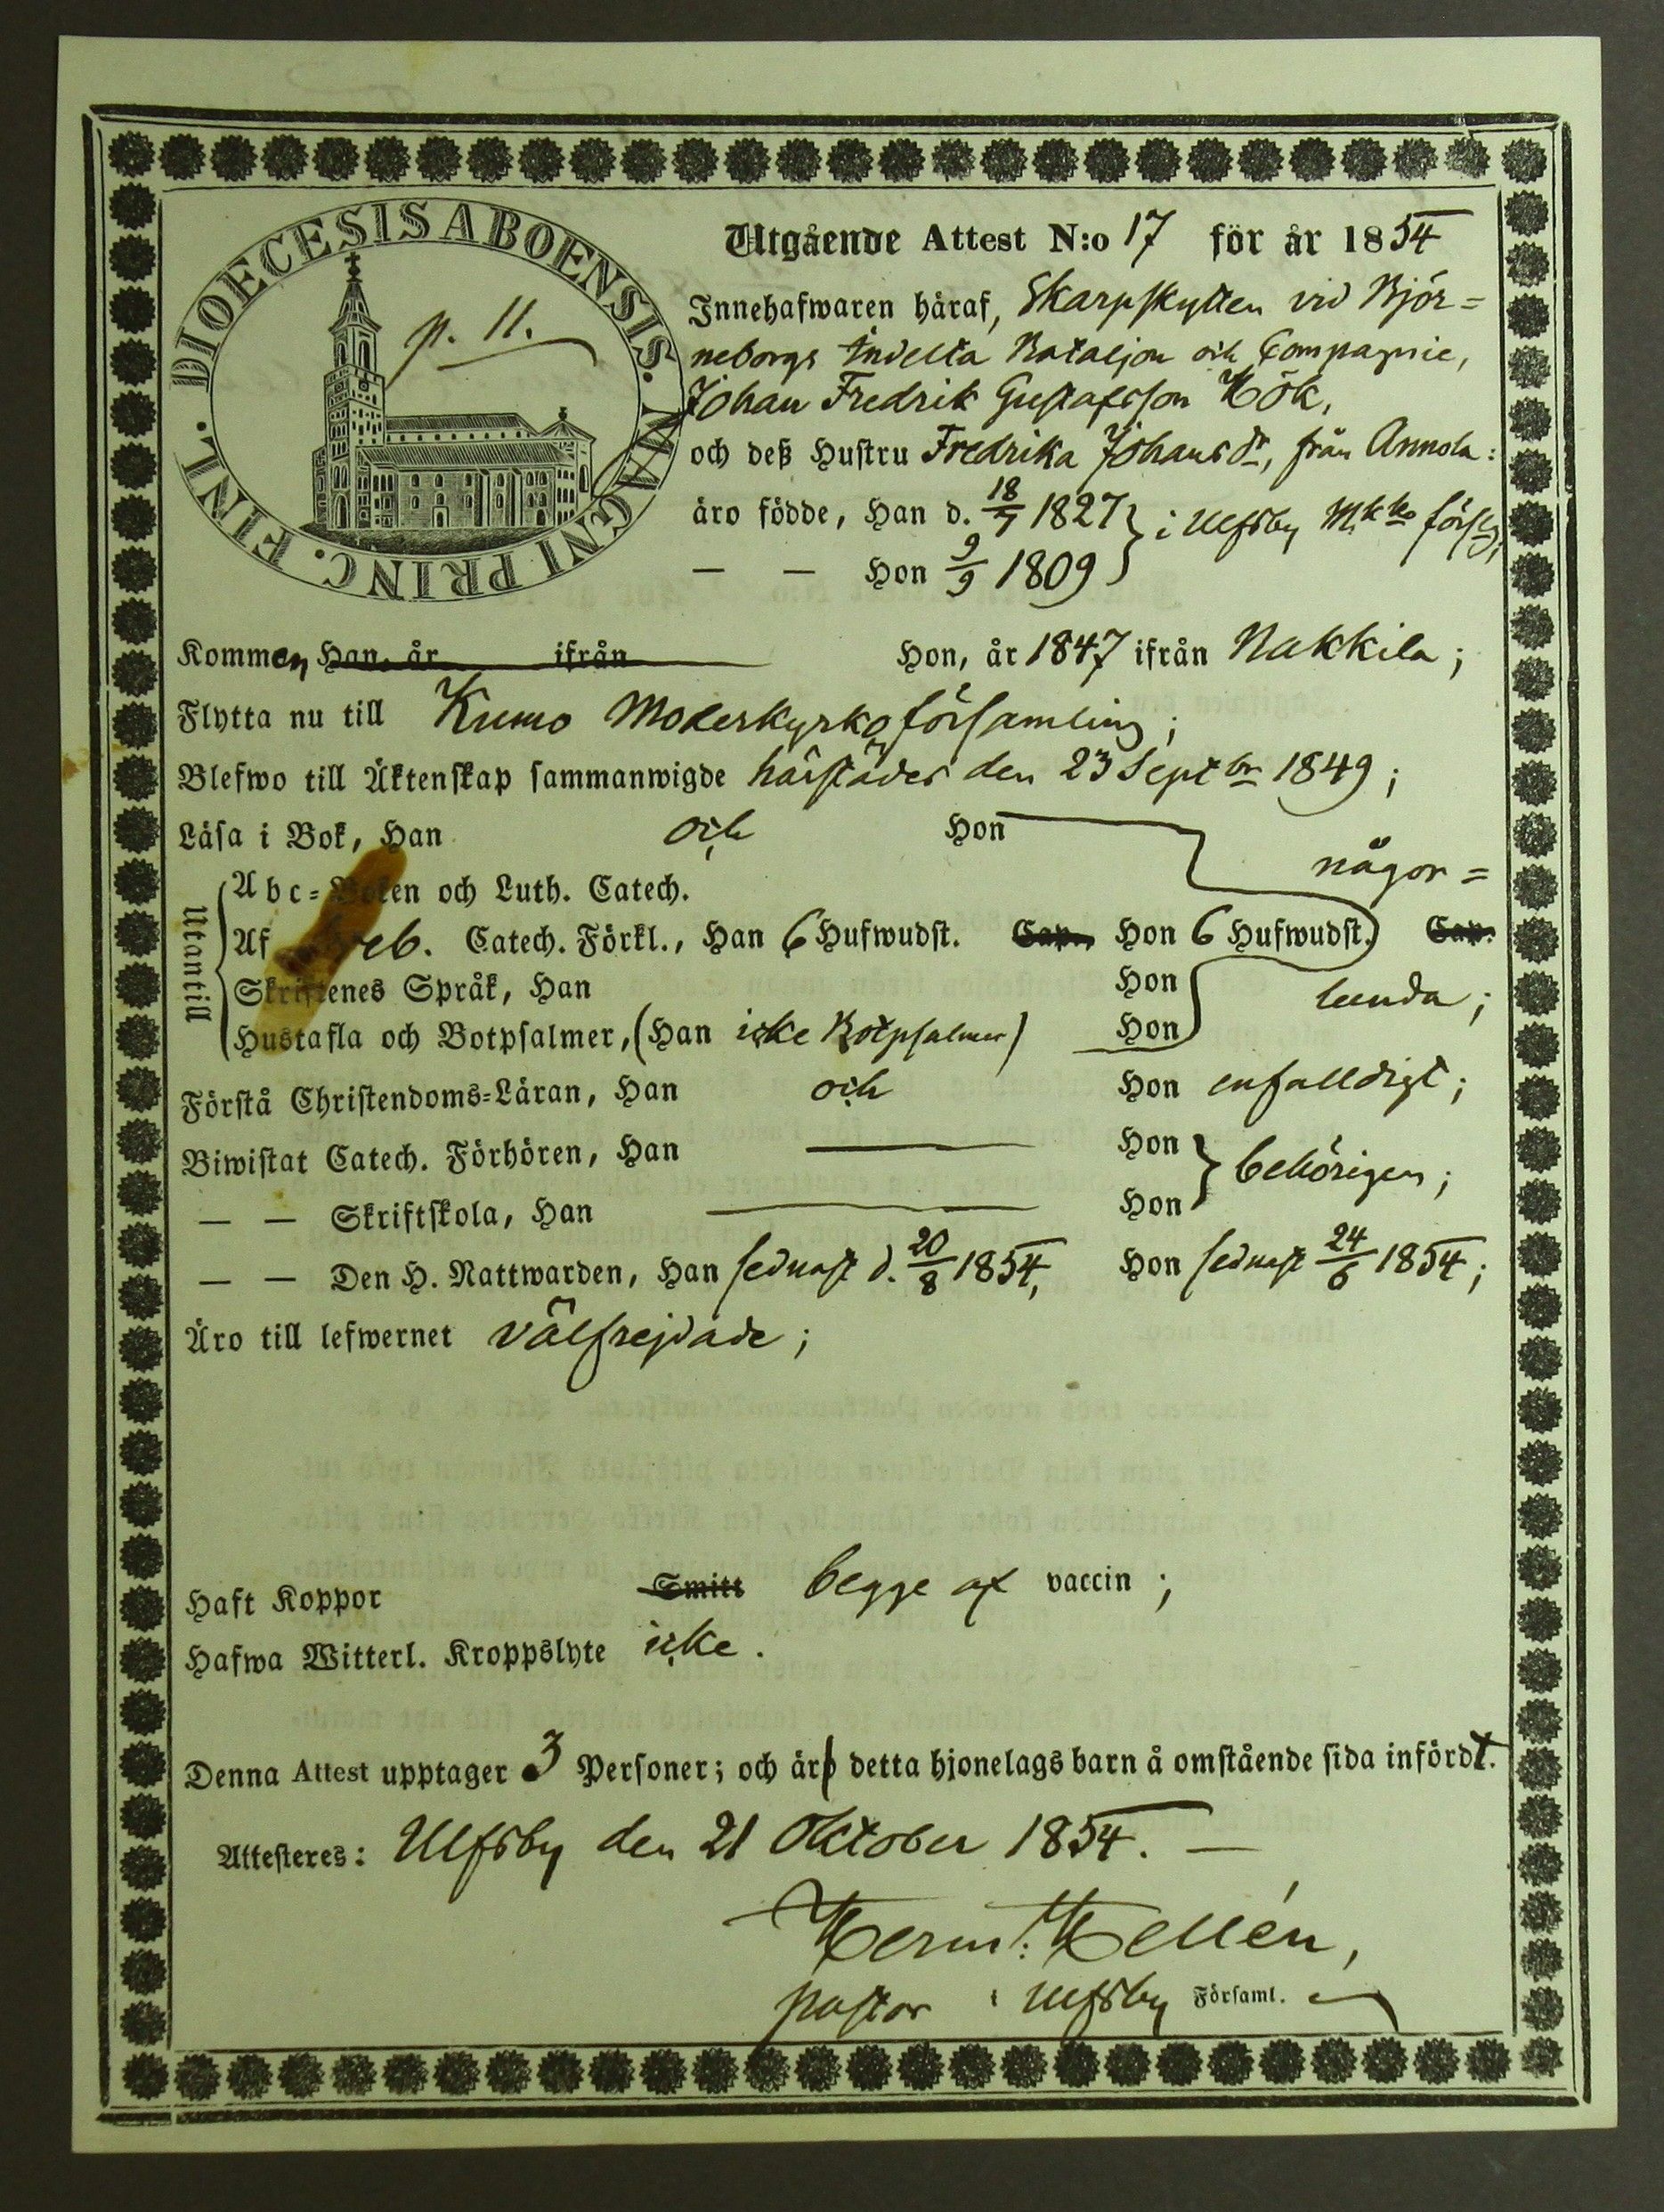 DIOECESIS ABOENSIS. MAGNI PRINC. FINL.
p. 11.
Utgående Attest N:o 17 för år 1854
Innehafwaren häraf, Skarpskytten vid Björ=
neborgs Indelta Bataljon och Compagnie,
Johan Fredrik Gustafsson Hök,
och deß Hustru Fredrika Johansdr, från Annola:
äro födde, Han d. 18/7 1827 } i Ulfsby Mkko förslg,
— — Hon 9/9 1809
Kommen Han, år ifrån Hon, år 1847 ifrån Nakkila;
Flytta nu till Kumo Moderkyrkoförsamling;
Blefwo till Äktenskap sammanwigde härstädes den 23 Septbr 1849;
Läsa i Bok, Han och Hon någor=
Utantill
Abc=Boken och Luth. Catech.
Af Catech. Förkl., Han 6 Hufwudst. Cap., Hon 6 Hufwudst. Cap.
Skriftenes Språk, Han Hon lunda;
Hustafla och Botpsalmer, (Han icke Botpsalmer) Hon
Förstå Christendoms=Läran, Han och Hon enfalldigt;
Biwistat Catech. Förhören, Han — Hon } behörigen;
— — Skriftskola, Han — Hon
— — Den H. Nattwarden, Han sednast d. 20/8 1854, Hon sednast 24/6 1854;
Äro till lefwernet välfrejdade;
Haft Koppor Smitt begge af vaccin;
Hafwa Witterl. Kroppslyte icke.
Denna Attest upptager 3 Personer; och är detta hjonelags barn å omstående sida infördt.
Attesteres: Ulfsby den 21 Oktober 1854. —
Herm: Hellén,
pastor i Ulfsby Församl.